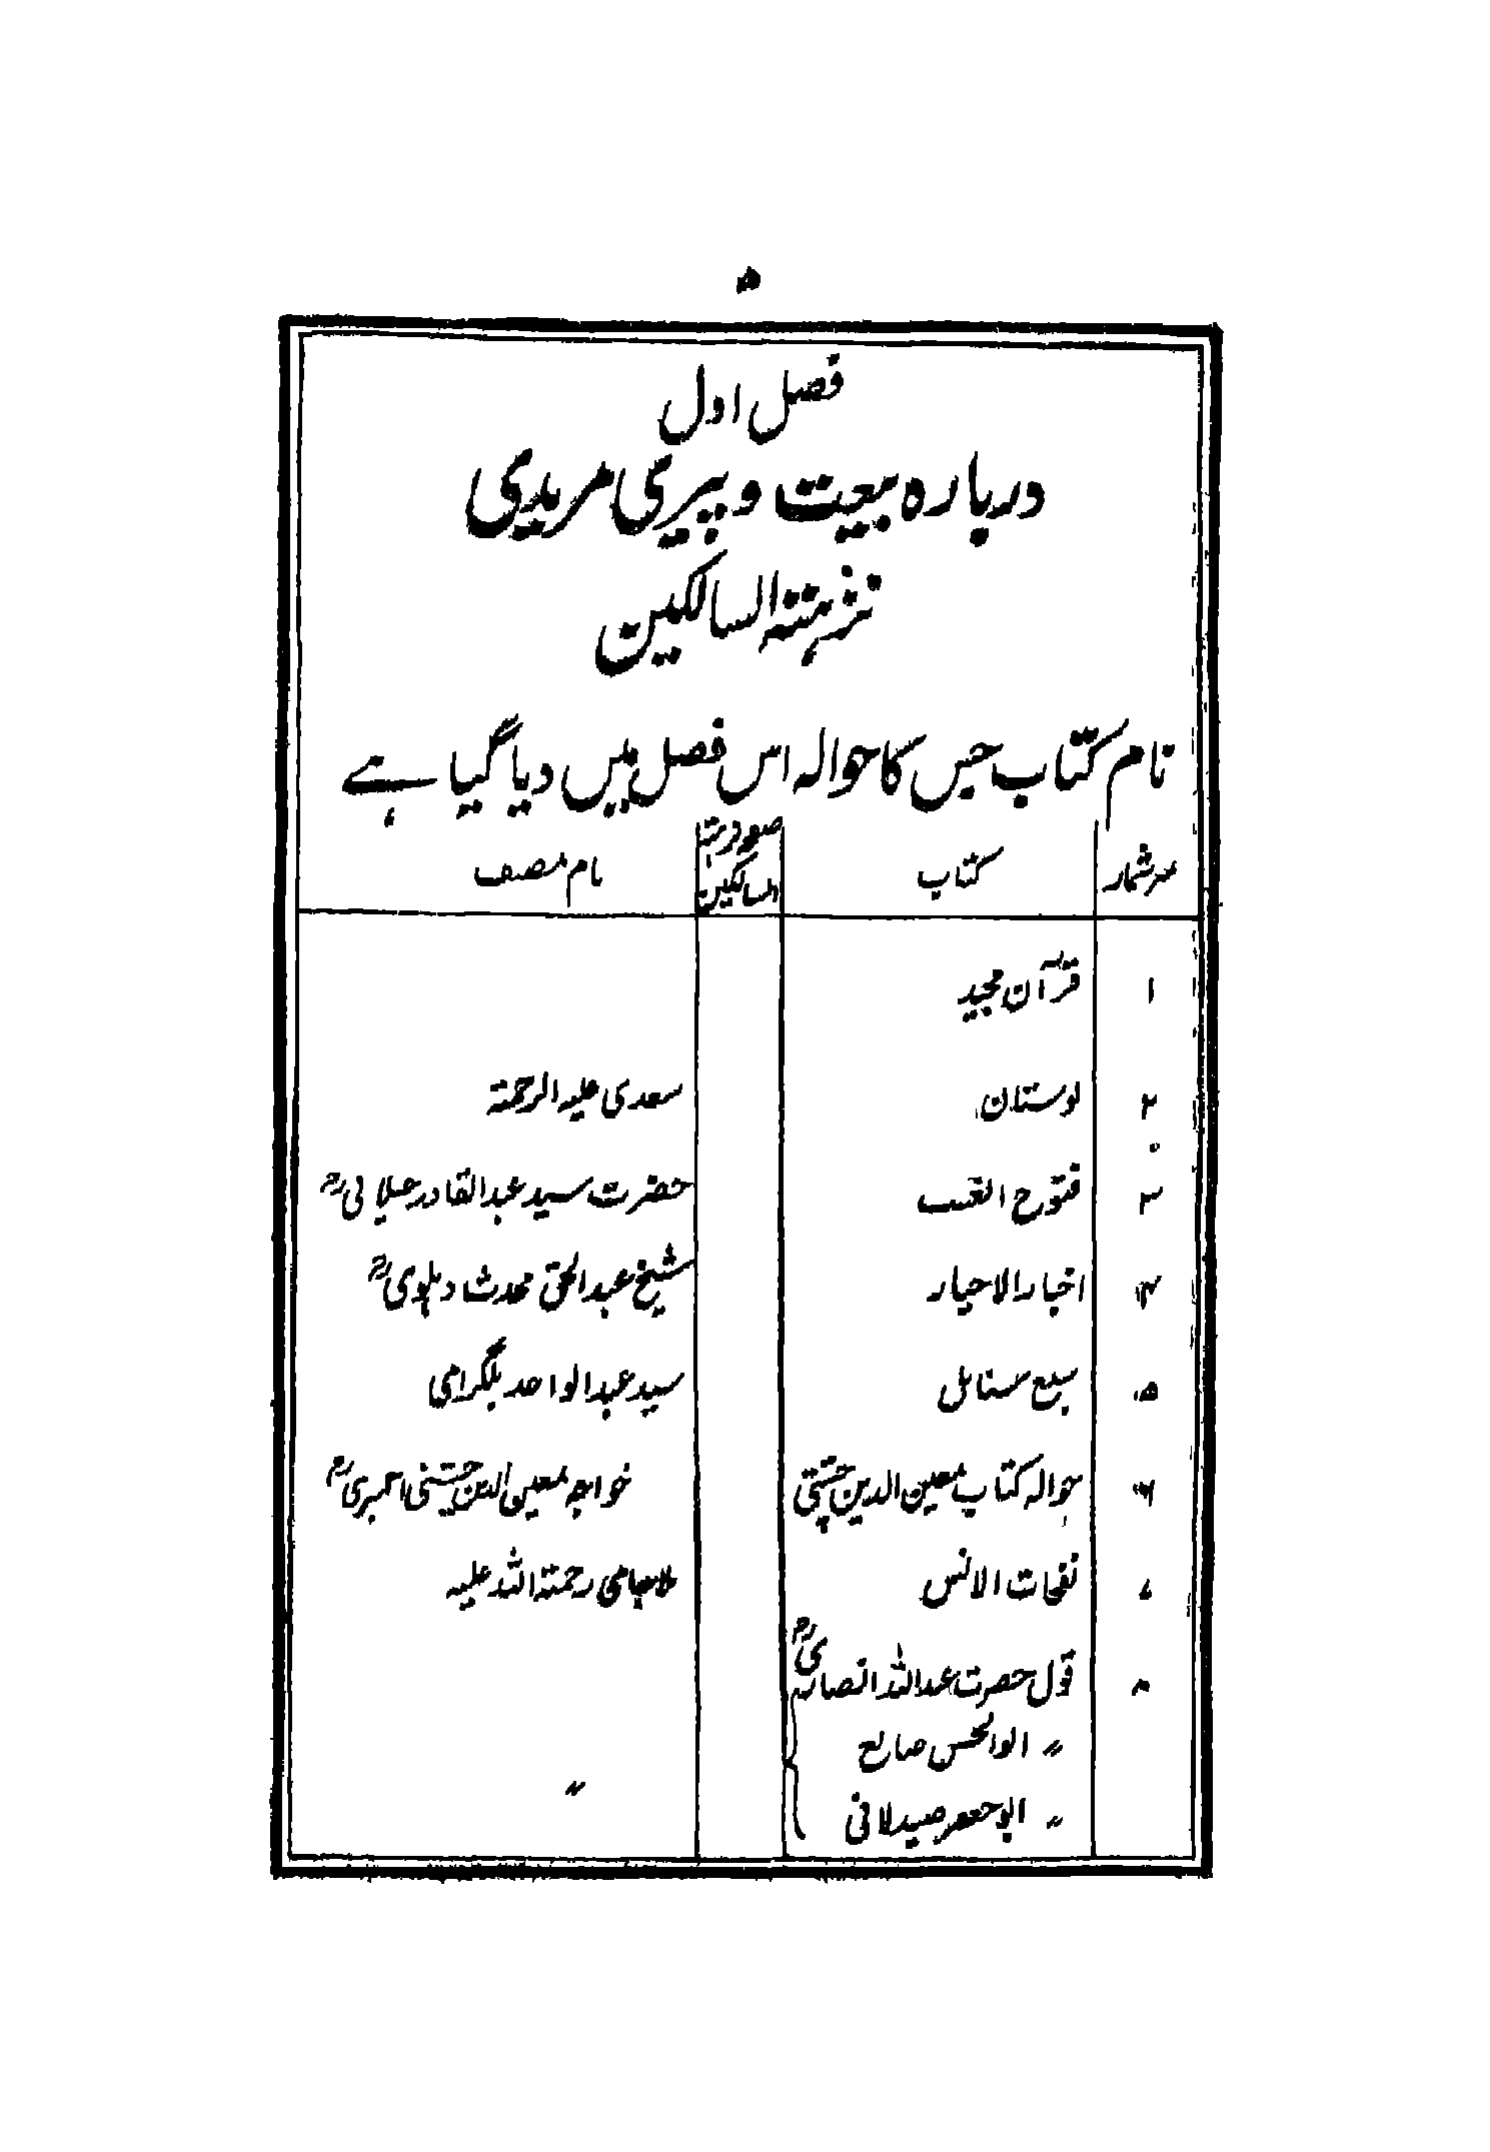 ۵
فصل اول
درباره بیعت و پیری مریدی
نزہتہ السالکین
نام کتاب جس کا حوالہ اس فصل میں دیا گیا ہے
نمبر شمار کتاب صفحہ نزہتہ السالکین نام مصنف
۱ قرآن مجید
۲ بوستان سعدی علیہ الرحمتہ
۳ فتوح الغیب حضرت سید عبدالقادر جیلانی رح
۴ اخبار الاخیار شیخ عبدالحق محدث دہلوی رح
۵ سبع سنابل سید عبدالواحد بلگرامی
۶ حوالہ کتاب معین الدین چشتی خواجہ معین الدین چشتی اجمیری رح
۷ نفحات الانس ملا جامی رحمتہ اللہ علیہ
۸ قول حضرت عبداللہ انصاری رح
〃 ابوالحسن صایع
〃 ابو جعفر صیدلانی 〃